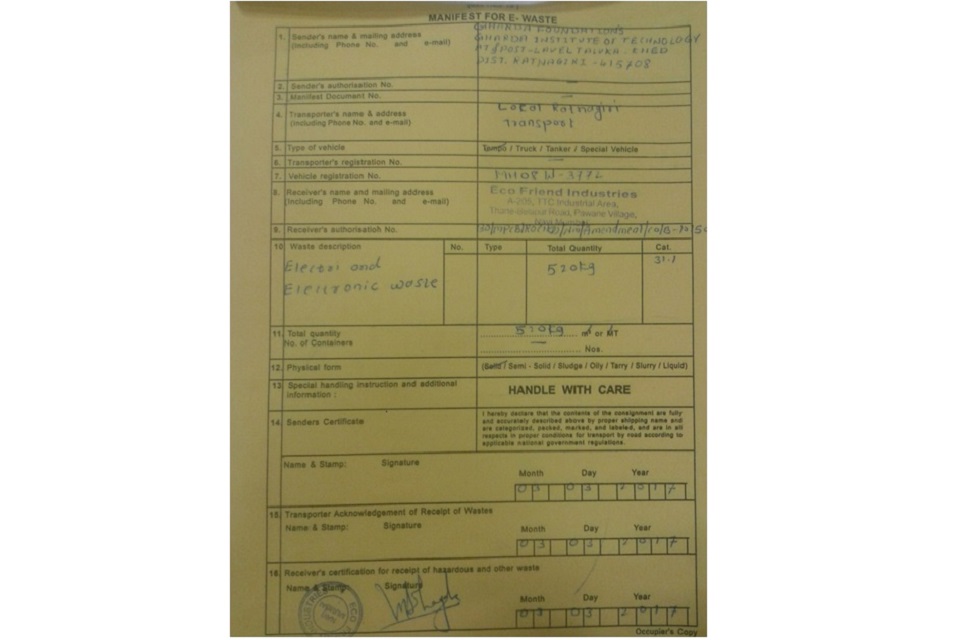 MANIFEST FOR E- WASTE
1. Sender's name & mailing address
(including Phone No. and e-mail)
GHARDA FOUNDATION'S
GHARDA INSTITUTE OF TECHNOLOGY
AT & POST-LAVEL TALUKA. KHED
DIST. RATNAGIRI - 415708
2. Sender's authorisation No. —
3. Manifest Document No. —
4. Transporter's name & address
(including Phone No. and e-mail)
Local Ratnagiri
Transport
5. Type of vehicle Tempo / Truck / Tanker / Special Vehicle
6. Transporter's registration No. —
7. Vehicle registration No. MH08 W-3772
8. Receiver's name and mailing address
(including Phone No. and e-mail)
Eco Friend Industries
A-205, TTC Industrial Area,
Thane-Belapur Road, Pawane Village,
Navi Mumbai
9. Receiver's authorisation No.
10 Waste description No. Type Total Quantity Cat.
Electri and
Electronic waste
520kg 31.1
11. Total quantity 520kg m³ or MT
No. of Containers — Nos.
12. Physical form (Solid / Semi - Solid / Sludge / Oily / Tarry / Slurry / Liquid)
13 Special handling instruction and additional
information :
HANDLE WITH CARE
14. Senders Certificate
I hereby declare that the contents of the consignment are fully
and accurately described above by proper shipping name and
are categorized, packed, marked, and labeled, and are in all
respects in proper conditions for transport by road according to
applicable national government regulations.
Name & Stamp: Signature
Month Day Year
03 03 2017
15. Transporter Acknowledgement of Receipt of Wastes
Name & Stamp: Signature
Month Day Year
03 03 2017
16. Receiver's certification for receipt of hazardous and other waste
Name & Stamp Signature
Month Day Year
03 03 2017
Occupier's Copy